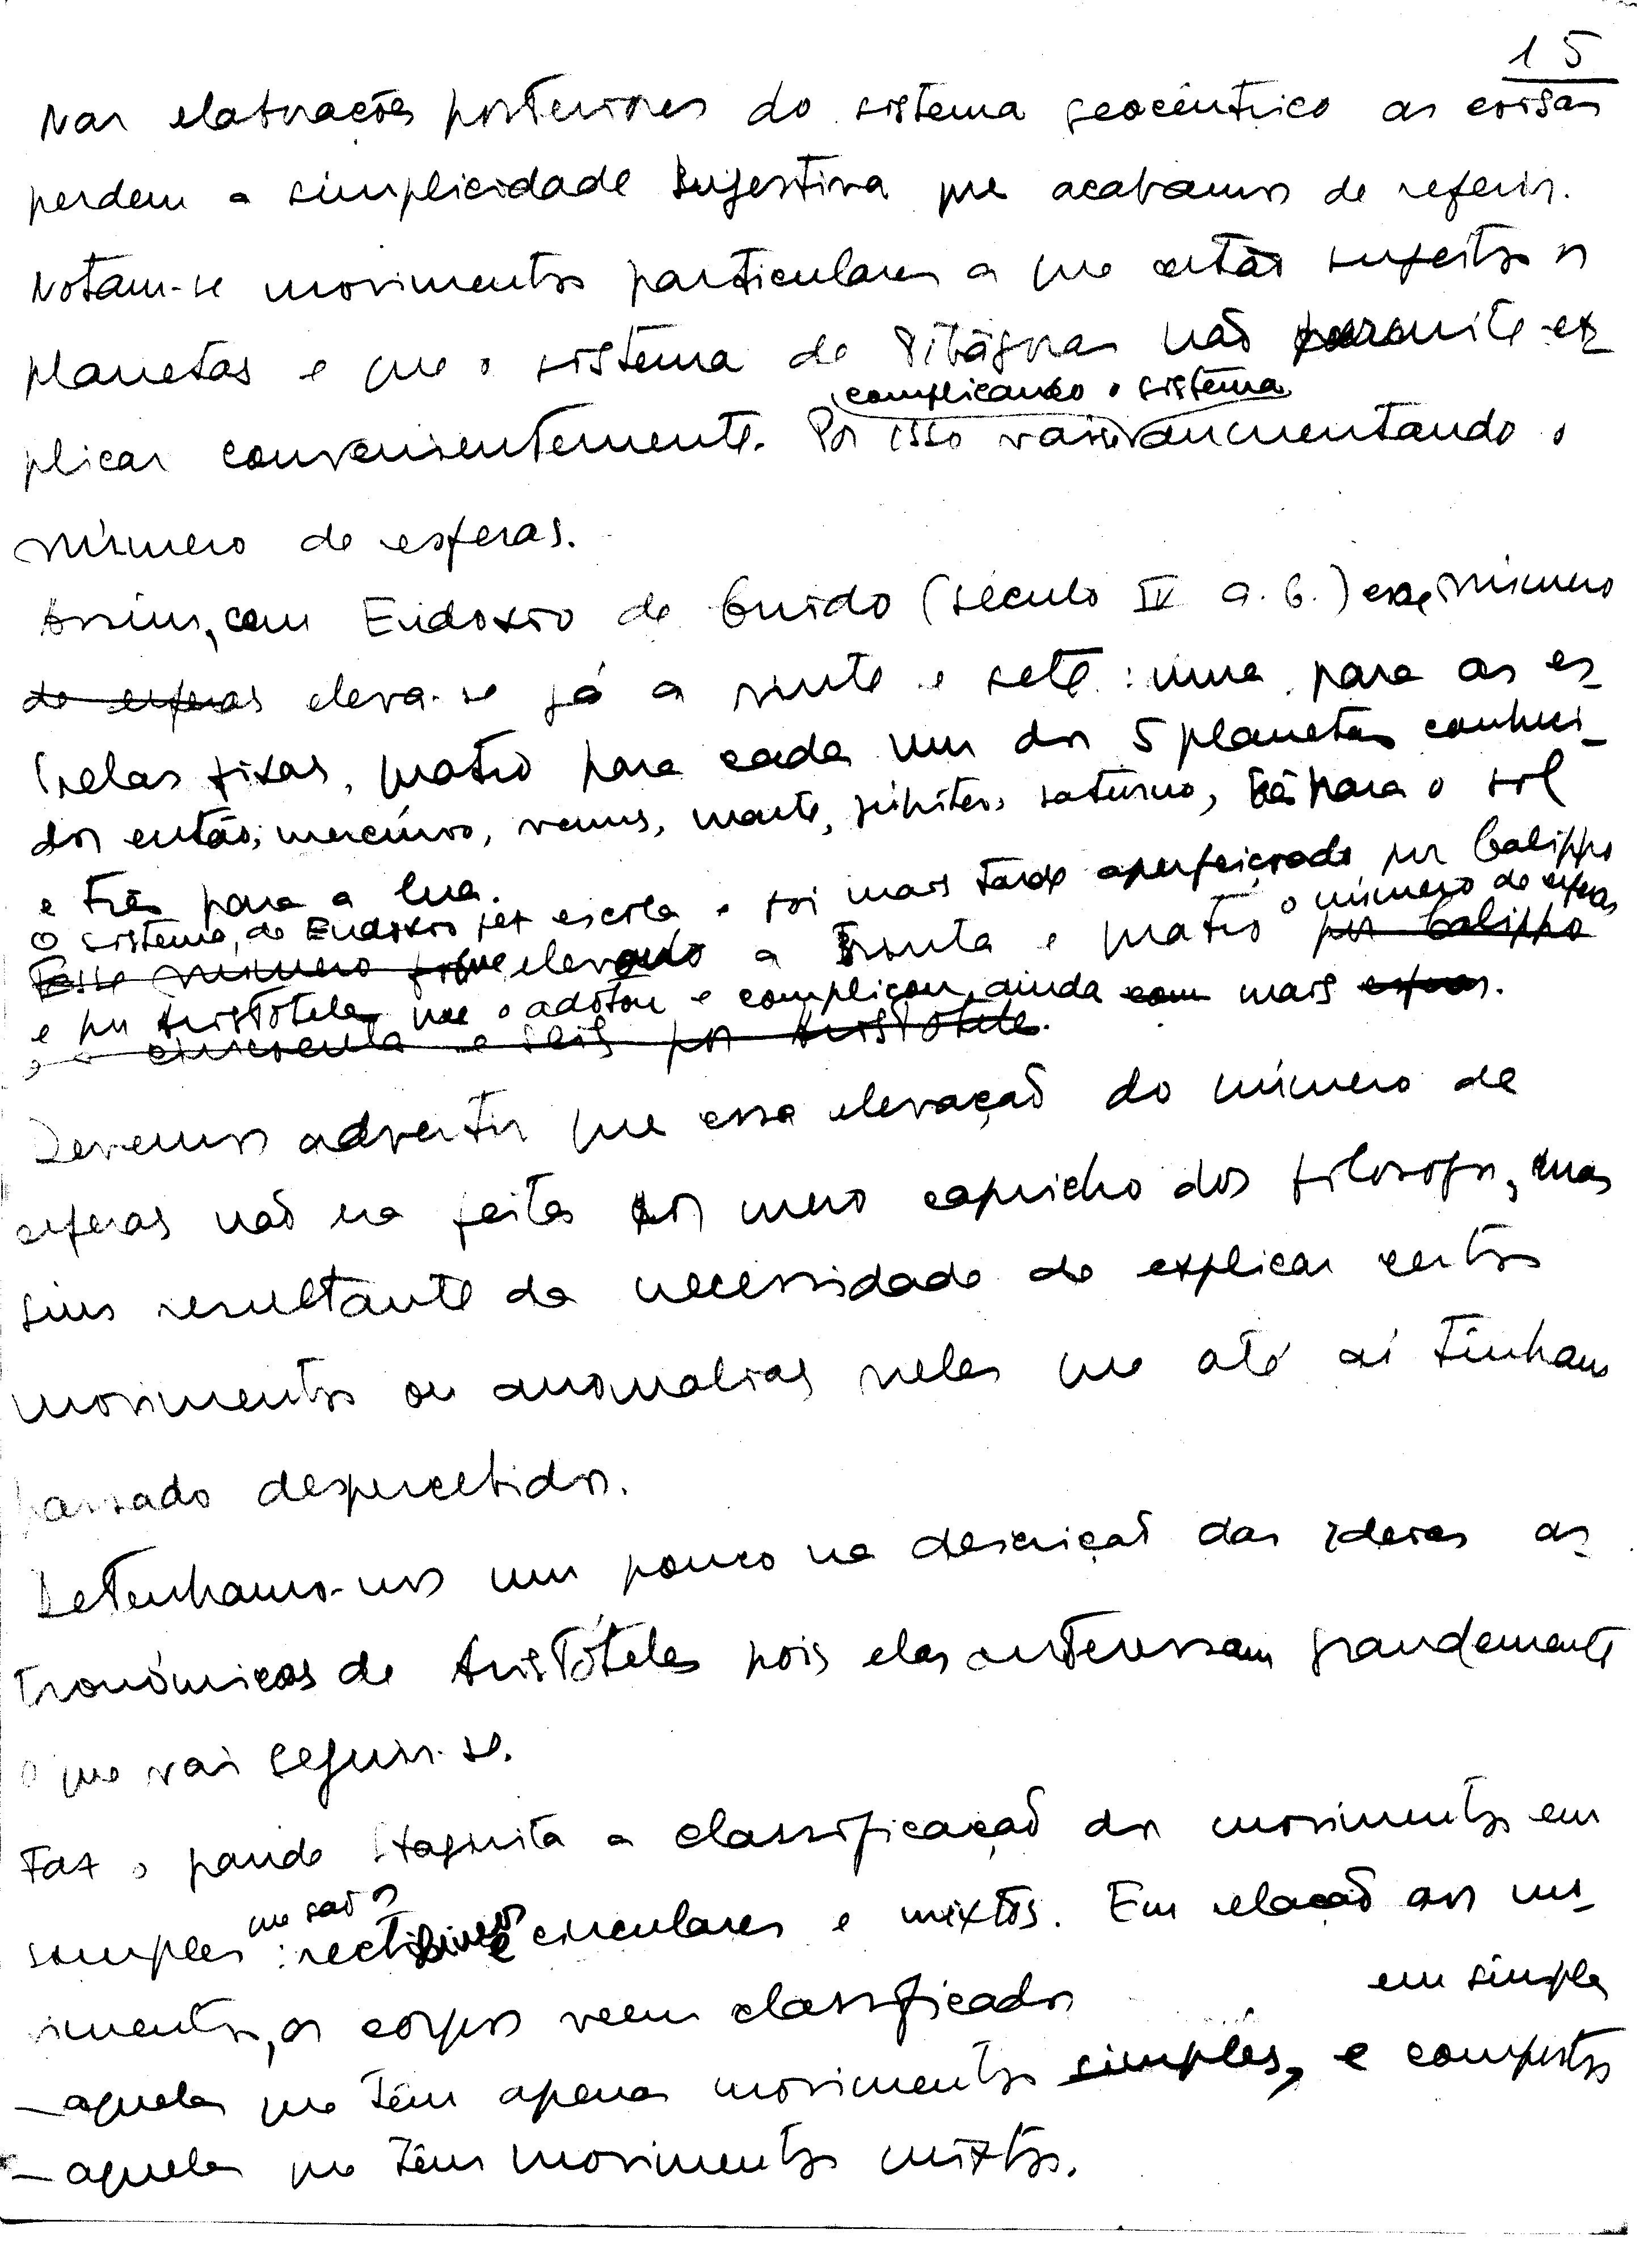 15
Nas elaborações posteriores do sistema geocêntrico as coisas
perdem a simplicidade sugestiva que acabamos de referir.
Notam-se movimentos particulares a que estão sujeitos os
planetas e que o sistema de Pitágoras não permite ex-
complicando o sistema
plicar convenientemente. Por isso vai-se aumentando o
número de esferas.
Assim, com Eudoxio de Cnido (século IV a. C.) esse número
de esferas eleva-se já a vinte e sete: uma para as es-
trelas fixas, quatro para cada um dos 5 planetas conheci-
dos então; mercúrio, venus, marte, júpiter, saturno, três para o sol
e três para a lua.
O sistema de Eudoxio fez escola e foi mais tarde aperfeiçoado por Calippo
o número de esferas
Esse número foi que elevando a trinta e quatro por Calippo
e por Aristóteles que o adotou e complicou ainda com mais esferas.
, e cincoenta e seis por Aristóteles.
Devemos advertir que essa elevação do número de
esferas não era feita por mero capricho dos filosofos, mas
sim resultante da necessidade de explicar certos
movimentos ou anomalias neles que até aí tinham
passado despercebidos.
Detenhamo-nos um pouco na descrição das ideias as-
tronómicas de Aristóteles pois elas interessam grandemente
o que vai seguir-se.
Faz o grande Stagirita a classificação dos movimentos em
que são os
simples: rectilineos e circulares e mixtos. Em relação aos mo-
vimentos, os corpos veem classificados em simples
– aqueles que têm apenas movimentos simples, e compostos
– aqueles que têm movimentos mixtos.